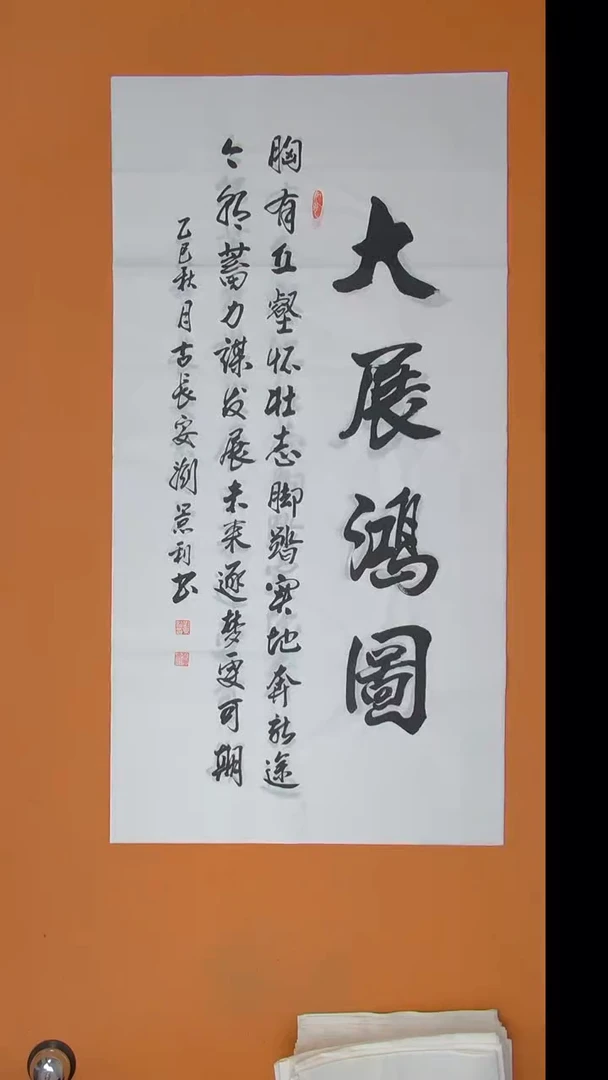 大展鴻圖
胸有丘壑怀壮志脚踏实地奔途
今朝蓄力謀发展未来逐梦更可期
乙巳秋月古長安劉景利书